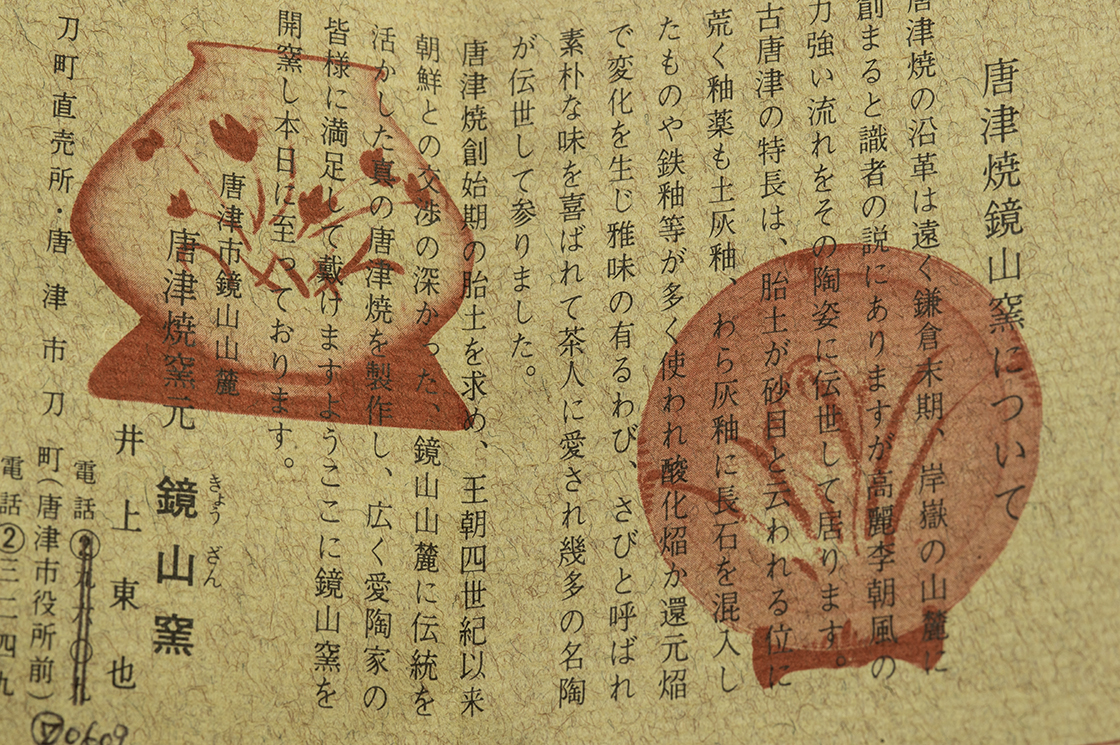 唐津焼鏡山窯について
唐津焼の沿革は遠く鎌倉末期、岸嶽の山麓に
創まると識者の説にありますが高麗李朝風の
力強い流れをその陶姿に伝世して居ります。
古唐津の特長は、胎土が砂目と云われる位に
荒く釉薬も土灰釉、わら灰釉に長石を混入し
たものや鉄釉等が多く使われ酸化焔か還元焔
で変化を生じ雅味の有るわび、さびと呼ばれ
素朴な味を喜ばれて茶人に愛され幾多の名陶
が伝世して参りました。
唐津焼創始期の胎土を求め、王朝四世紀以来
朝鮮との交渉の深かった、鏡山山麓に伝統を
活かした真の唐津焼を製作し、広く愛陶家の
皆様に満足して戴けますようここに鏡山窯を
開窯し本日に至っております。
唐津市鏡山山麓
唐津焼窯元 鏡山窯
きょうざん
井上東也
電話②
刀町直売所・唐津市刀町(唐津市役所前)
電話②三二四九